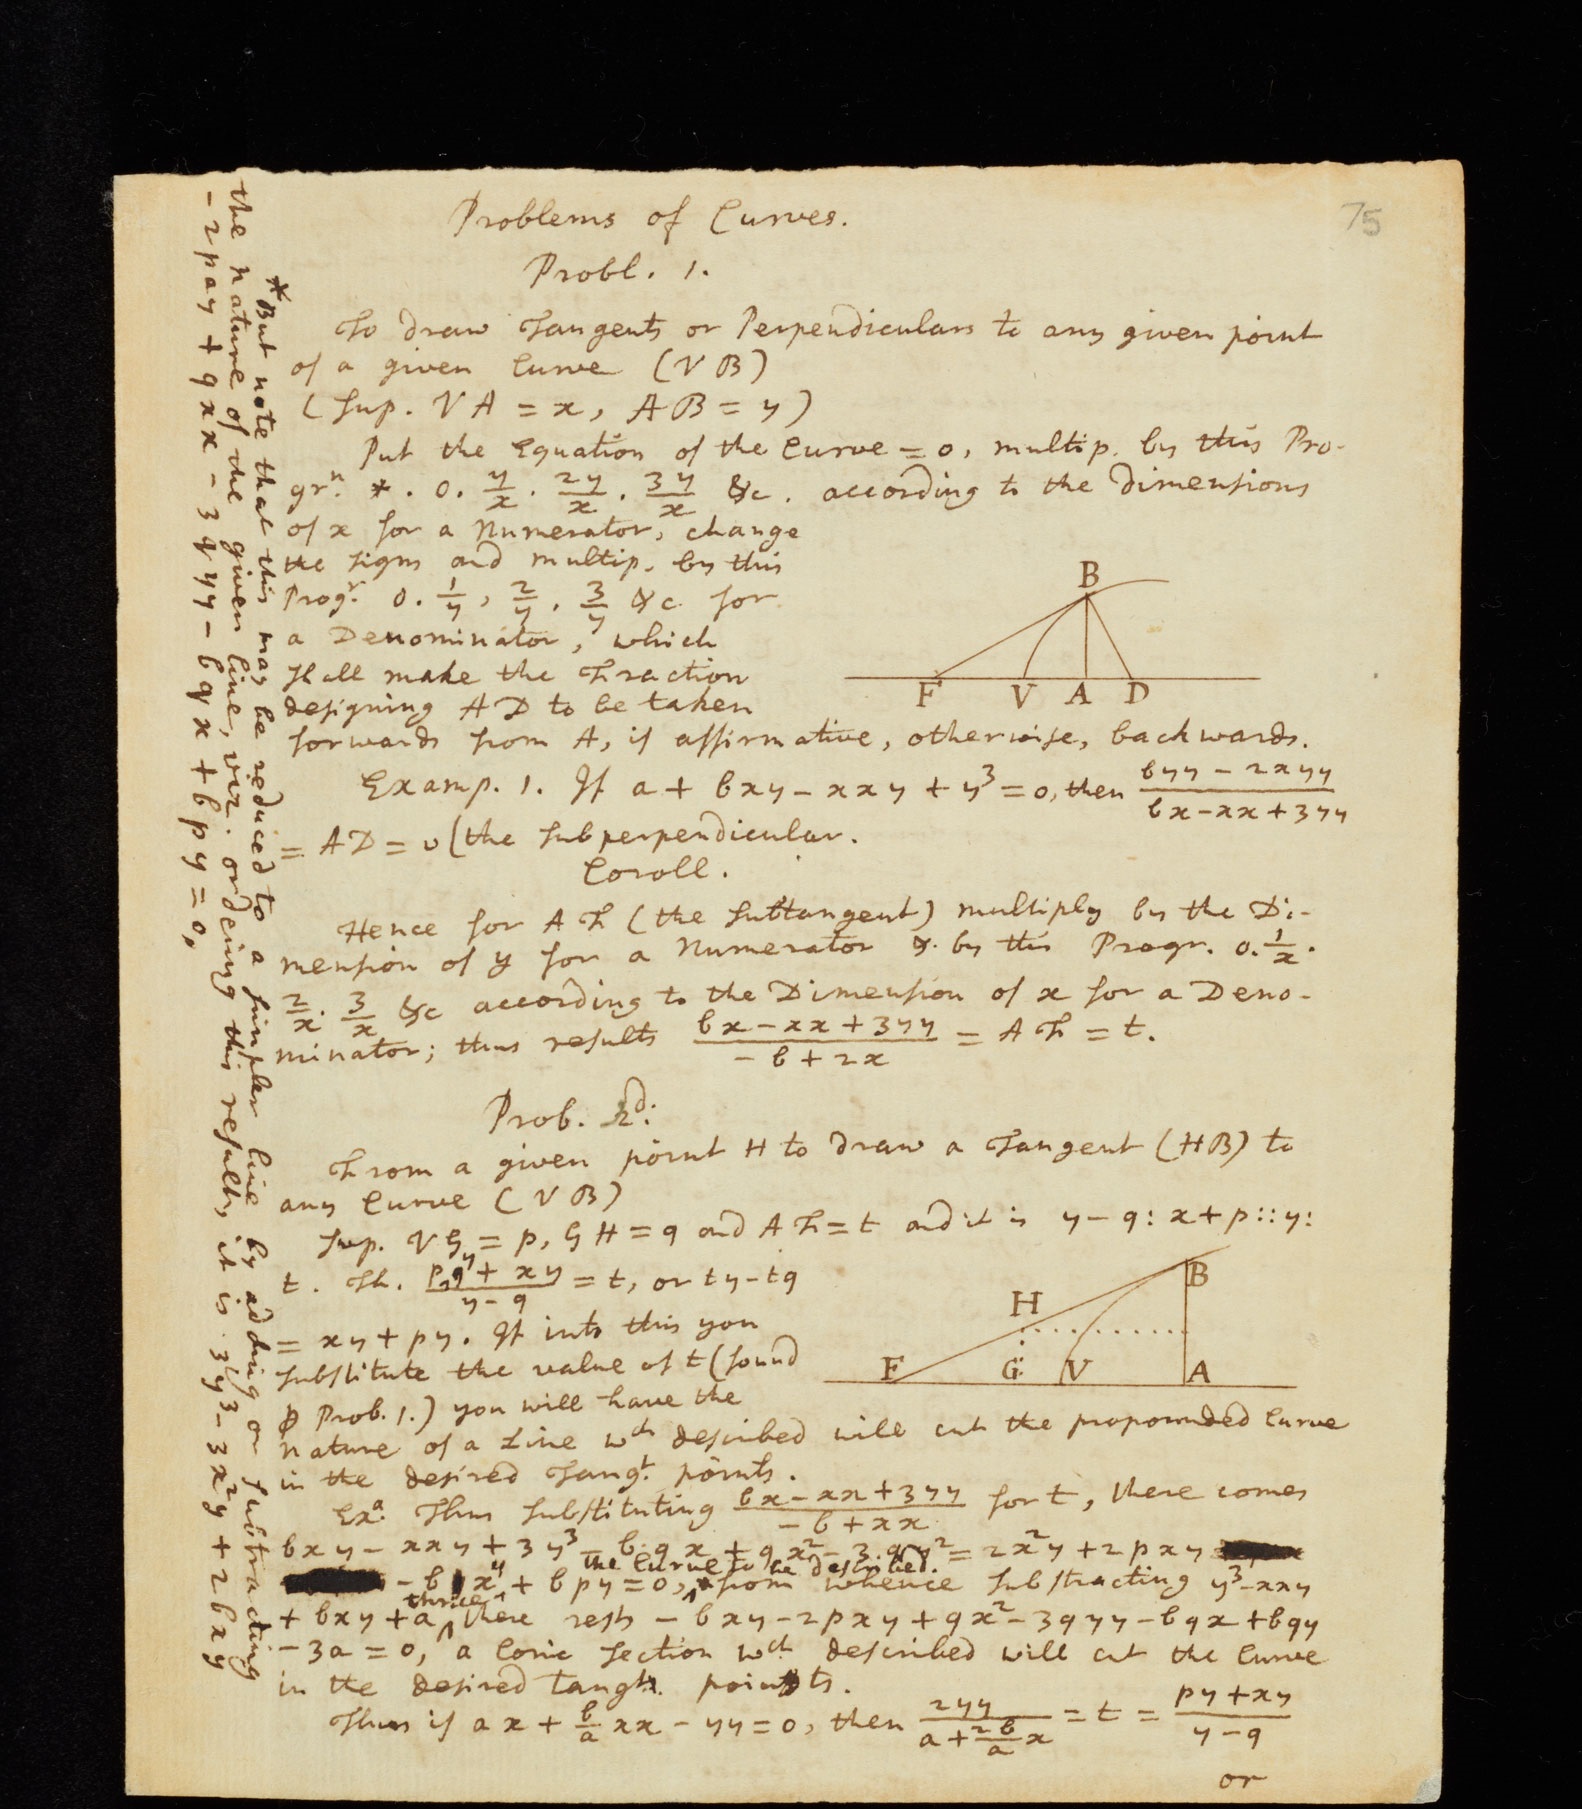 75
Problems of Curves.
Probl. 1.
To draw Tangents or Perpendiculars to any given point
of a given Curve (VB)
(Sup. VA = x, AB = y)
Put the Equation of the Curve = 0, multip. by this Pro-
grⁿ. * . 0 . y/x . 2y/x . 3y/x &c. according to the dimensions
of x for a Numerator, change
the signs and multip. by this
Progr. 0 . 1/y , 2/y . 3/y &c for
a Denominator, which
shall make the Fraction
designing AD to be taken
forwards from A, if affirmative, otherwise, backwards.
B
F V A D
Examp. 1. If a + bxy - xxy + y³ = 0, then (byy - 2xyy)/(bx - xx + 3yy)
= AD = v (the subperpendicular.
Coroll.
Hence for AF (the subtangent) multiply by the Di-
mension of y for a Numerator & by this Progr. 0 . 1/x .
2/x . 3/x &c according to the Dimension of x for a Deno-
minator; thus results (bx - xx + 3yy)/(-b + 2x) = AF = t.
Prob. 2d:
From a given point H to draw a Tangent (HB) to
any Curve (VB)
Sup. VG = p, GH = q and AF = t and it is y - q : x + p :: y :
t. Th. (py + xy)/(y - q) = t, or ty - tq
= xy + py. If into this you
substitute the value of t (found
℘ Prob. 1.) you will have the
nature of a Line wch described will cut the propounded Curve
in the desired Tangt. points.
B
H
F G V A
Exa. Thus substituting (bx - xx + 3yy)/(-b + xx) for t, there comes
bxy - xxy + 3y³ - bqx + qx² - 3qy² = 2x²y + 2pxy
- bxy + bpy = 0, the Curve to be described. * from whence substracting y³ - xxy
+ bxy + a thrice there rests - bxy - 2pxy + qx² - 3qyy - bqx + bqy
- 3a = 0, a Conic Section wch described will cut the Curve
in the desired tangt. points.
Thus if ax + b/a xx - yy = 0, then 2yy/(a + 2b/a x) = t = (py + xy)/(y - q)
or
* But note that this may be reduced to a simpler line by adding or substracting
the nature of the given line, viz. ordering this result, it is 3y³ - 3x²y + 2bxy
- 2pxy + qxx - 3qyy - bqx + bpy = 0,